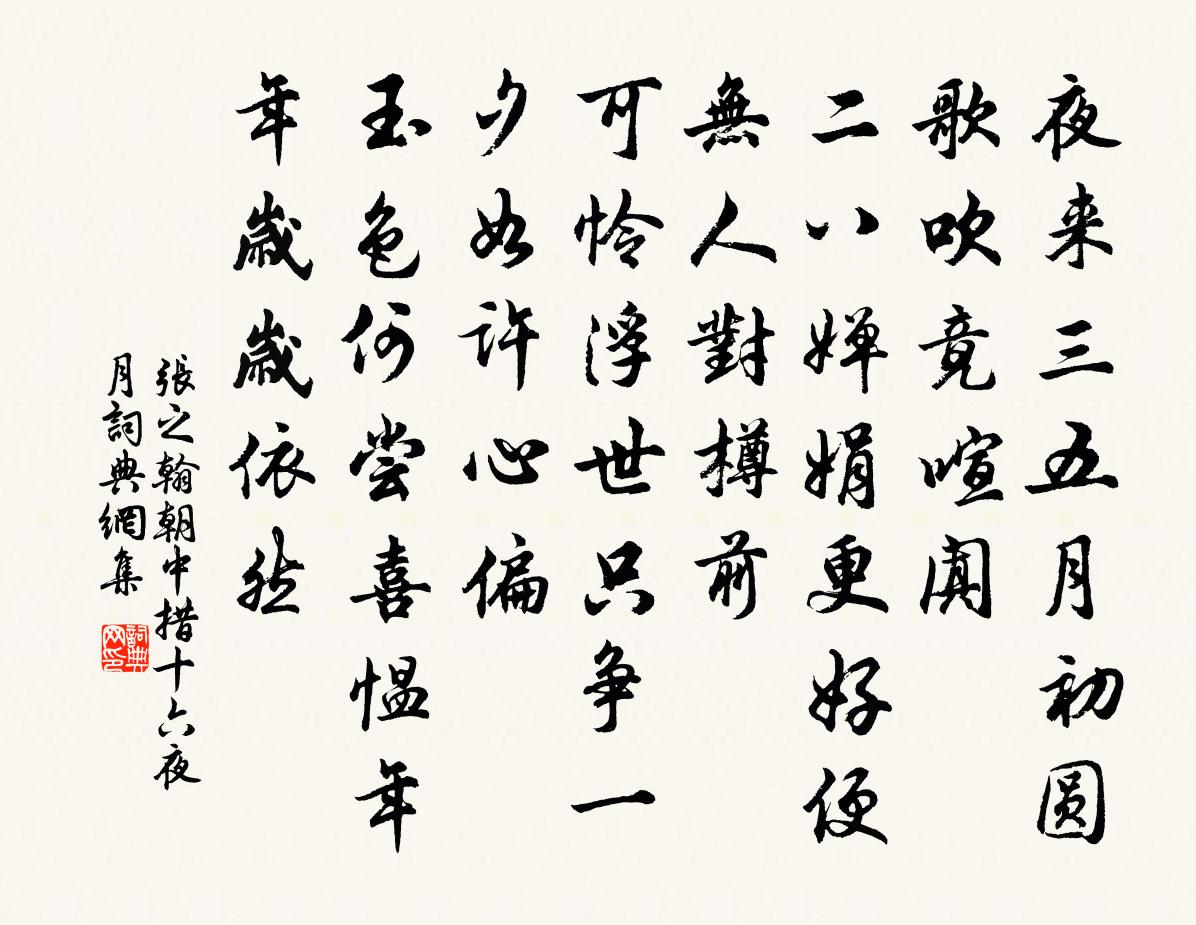 夜来三五月初圆
歌吹竟喧闐
二八婵娟更好便
無人對樽前
可怜浮世只争一
夕如許心偏
玉色何尝喜愠年
年歳歳依然
張之翰朝中措十六夜
月詞典網集
詞典网印